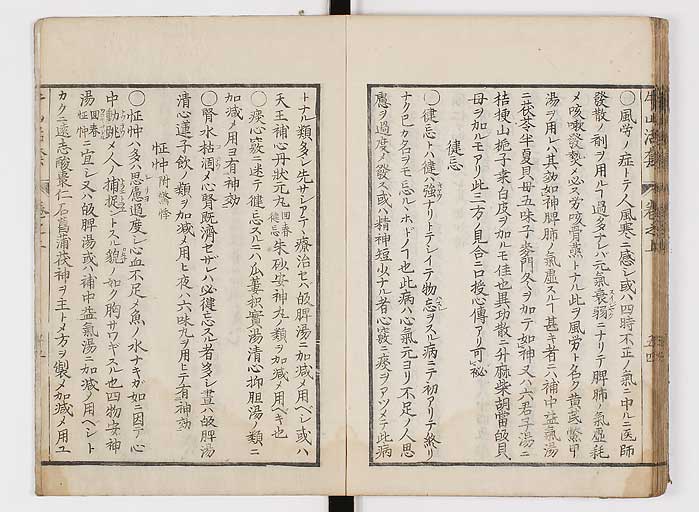 〇風労ノ症トテ人風寒ニ感シ或ハ四時不正ノ氣ニ中ルニ医師
發散ノ剤ヲ用ルヿ過多ナレハ元氣衰弱ニナリテ脾肺ノ氣虚耗
メ咳嗽發熱メ必ス労咳骨蒸トナル此ヲ風労ト名ク黄芪鱉甲
湯ヲ用レハ其効如神脾肺ノ氣虚スルヿ甚キ者ニハ補中益氣湯
ニ茯苓半夏貝母五味子麥門冬ヲ加テ如神又ハ六君子湯ニ
桔梗山梔子桑ノ白皮ヲ加ルモ佳也異功散ニ升麻柴胡當皈貝
母ヲ加ルモアリ此三方ノ見合ニ口授心傳アリ可秘
健忘
〇健忘トハ健ハ強ナリトテシイテ物忘ヲスル病ニテ初アリテ終リ
ナク己カ名ヲモ忘ルヽホドノヿ也此病ハ心氣元ヨリ不足ノ人思
慮ヲ過度メ發ス或ハ精神短少ナル者心竅ニ痰ヲアツメテ此病
トナル類多シ先サシアタリ療治セハ皈脾湯ニ加減メ用ベシ或ハ
天王補心丹状元丸回春健忘朱砂安神丸ノ類ヲ加減メ用ベキ也
〇痰心竅ニ迷テ健忘スルニハ瓜蔞枳實湯清心抑胆湯ノ類ニ
加減メ用ヨ有神効
〇腎水枯涸メ心腎既濟セザレハ必健忘スル者多シ晝ハ皈脾湯
清心蓮子飲ノ類ヲ加減メ用ヒ夜ハ六味丸ヲ用ヒテ有神効
怔忡附驚悸
〇怔忡ハ多ク思慮過度シ心血不足メ魚ノ水ナキガ如ニ因テ心
中動跳メ人ノ捕捉ントスル貌ノ如ク胸サワギスル也四物安神
湯回春怔忡ニ宜シ又ハ皈脾湯或ハ補中益氣湯ニ加減メ用ベシト
カクニ遠志酸棗仁石菖蒲茯神ヲ主トメ方ヲ製メ加減メ用ユ